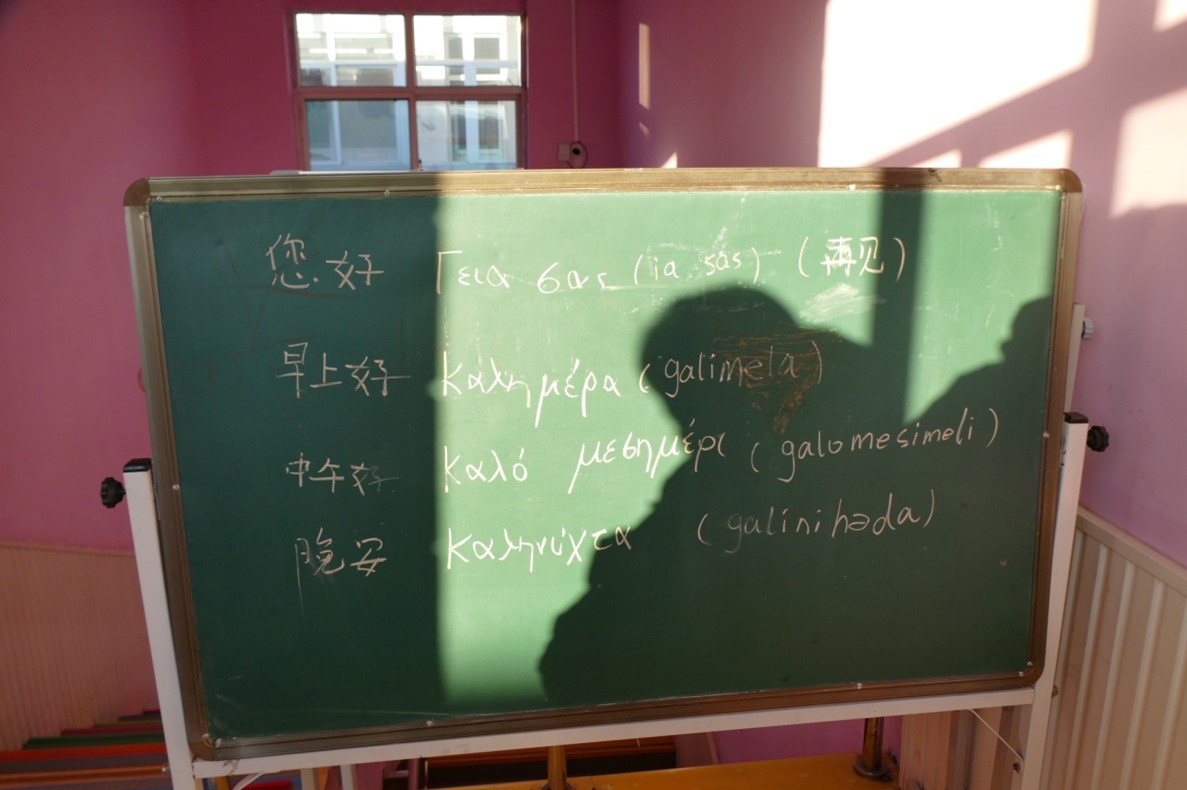 您好 Γεια σας (ia sas) (再见)
早上好 καλημέρα (galimela)
中午好 καλό μεσημέρι (galomesimeli)
晚安 καληνύχτα (galinihəda)